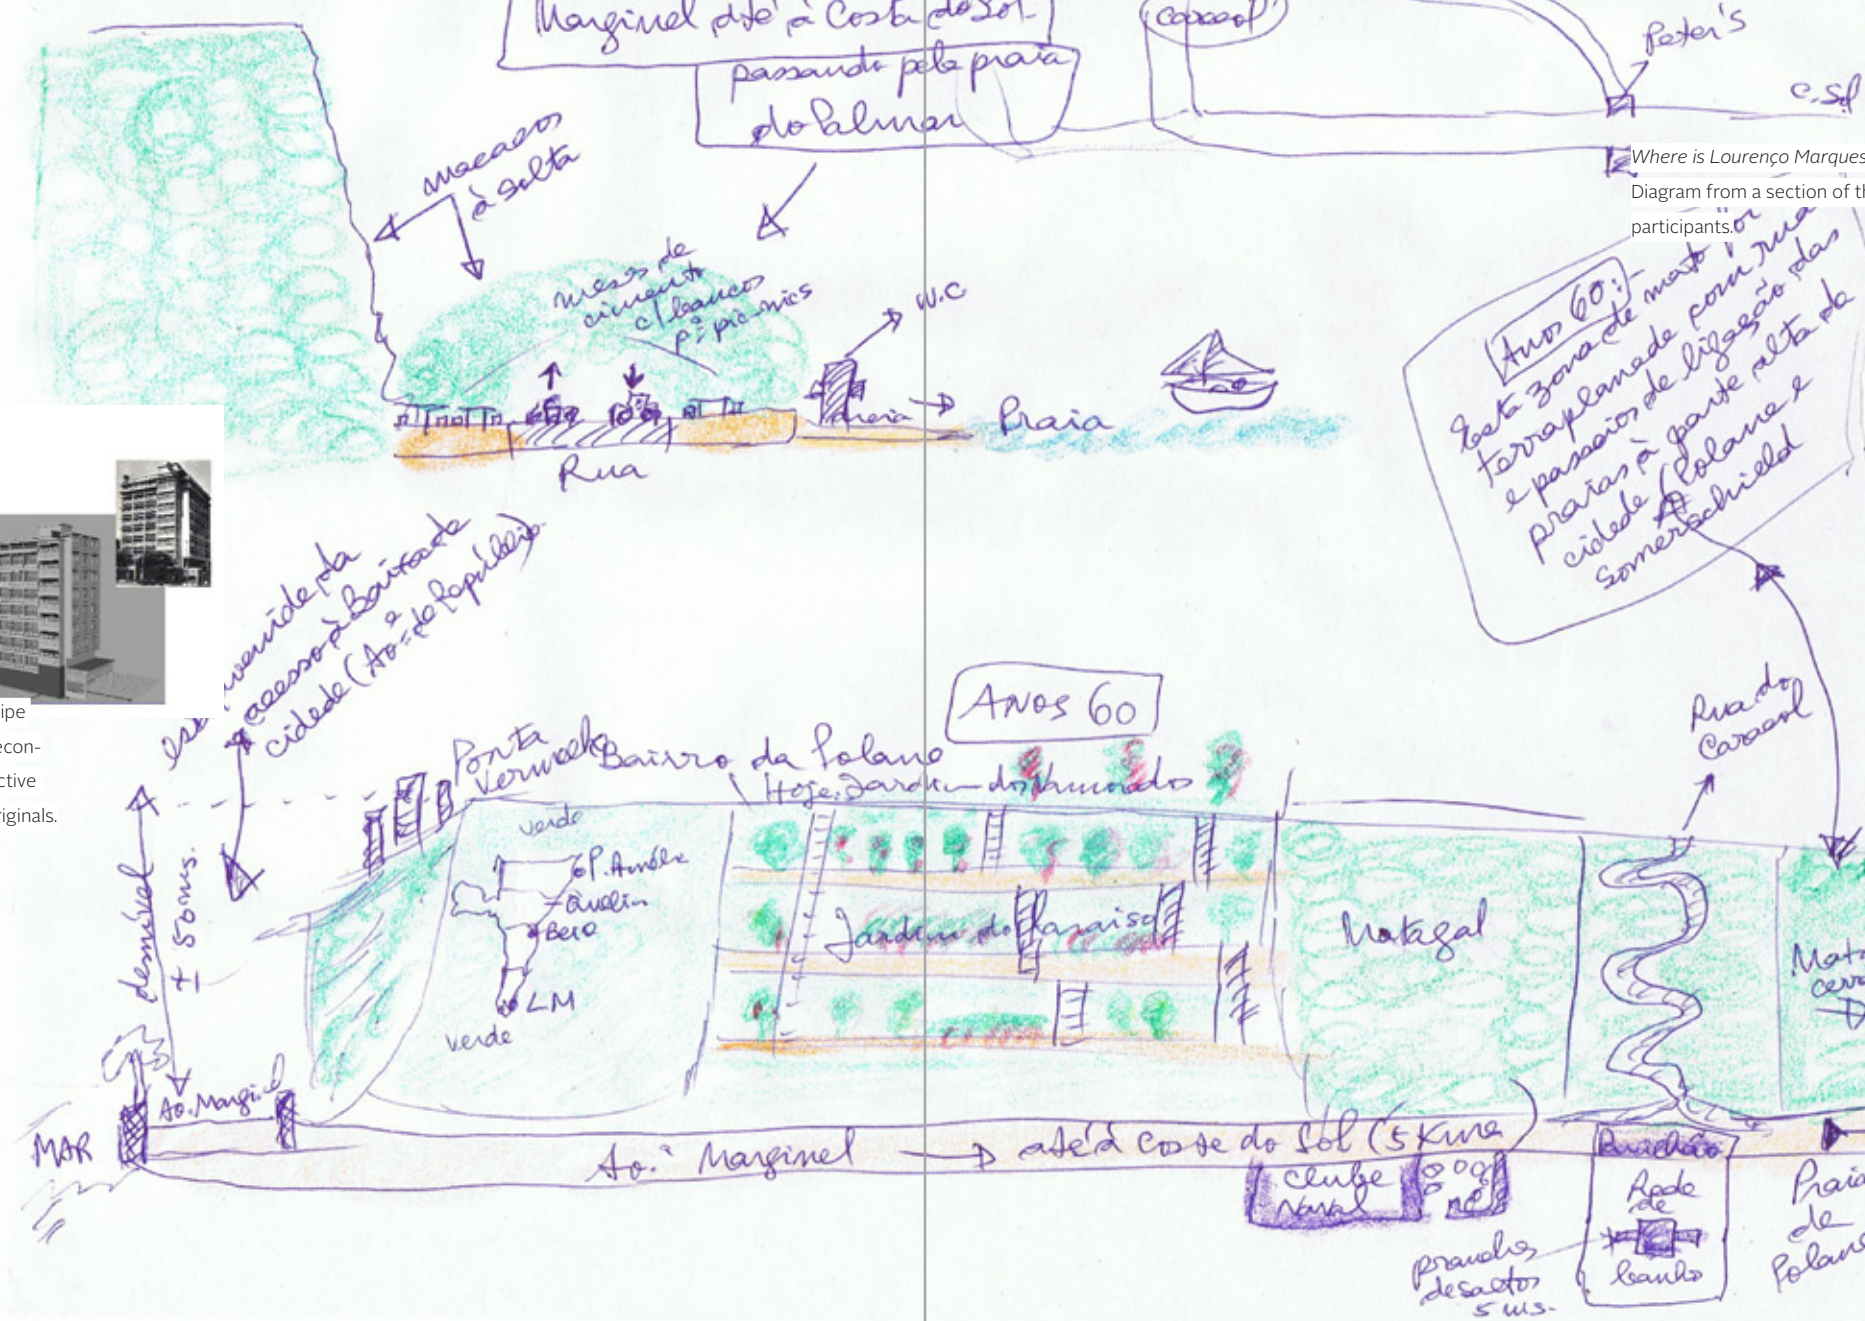 Marginal até à Costa do Sol
passando pela praia
do Palmar
Caracol
Peter's
C. Sol
Where is Lourenço Marques
Diagram from a section of th
participants.
macacos
à solta
mesas de
cimento
c/ bancos
pª pic-nics
W.C
areia
Praia
Rua
Anos 60:
Esta zona de mato foi
terraplanada com rua
e passeios de ligação das
praias à parte alta da
cidade (Polana e
Somerschield
ipe
econ-
ctive
riginals.
avenida da
acesso à Baixa da
cidade (Av. da República)
ANOS 60
Rua do
Caracol
Ponta
Vermelha
Bairro da Polana
Hoje: Jardim dos Namorados
verde
P. Amélia
Quelim
Beira
LM
verde
Jardim do Paraiso
Matagal
Mata
cerra
desnível
± 50 ms.
Av. Marginal
MAR
Av.ª Marginal → até à Costa do Sol (5 Kms)
Clube
Naval
Pavilhão
Rede
de
banho
Praia
de
Polana
pranchas
de saltos
5 ms.